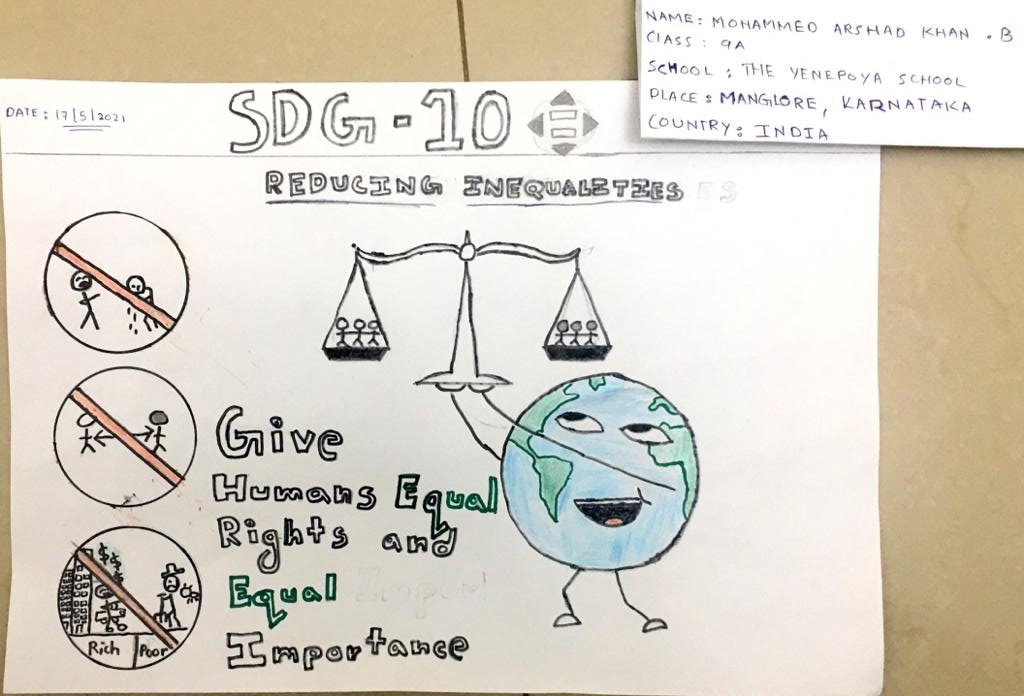 NAME: MOHAMMED ARSHAD KHAN . B
CLASS : 9A
SCHOOL : THE YENEPOYA SCHOOL
PLACE : MANGLORE, KARNATAKA
COUNTRY : INDIA
DATE : 17/5/2021
SDG-10
REDUCING INEQUALITIES
Give
Humans Equal
Rights and
Equal
Importance
$ $ $
Rich Poor